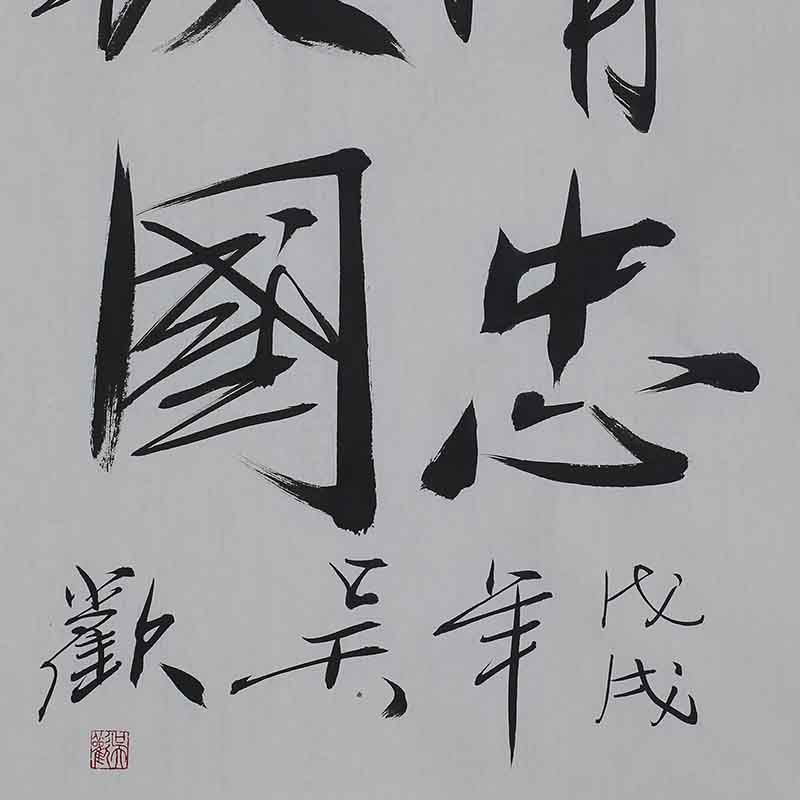 忠
國
戊戌年吴歡